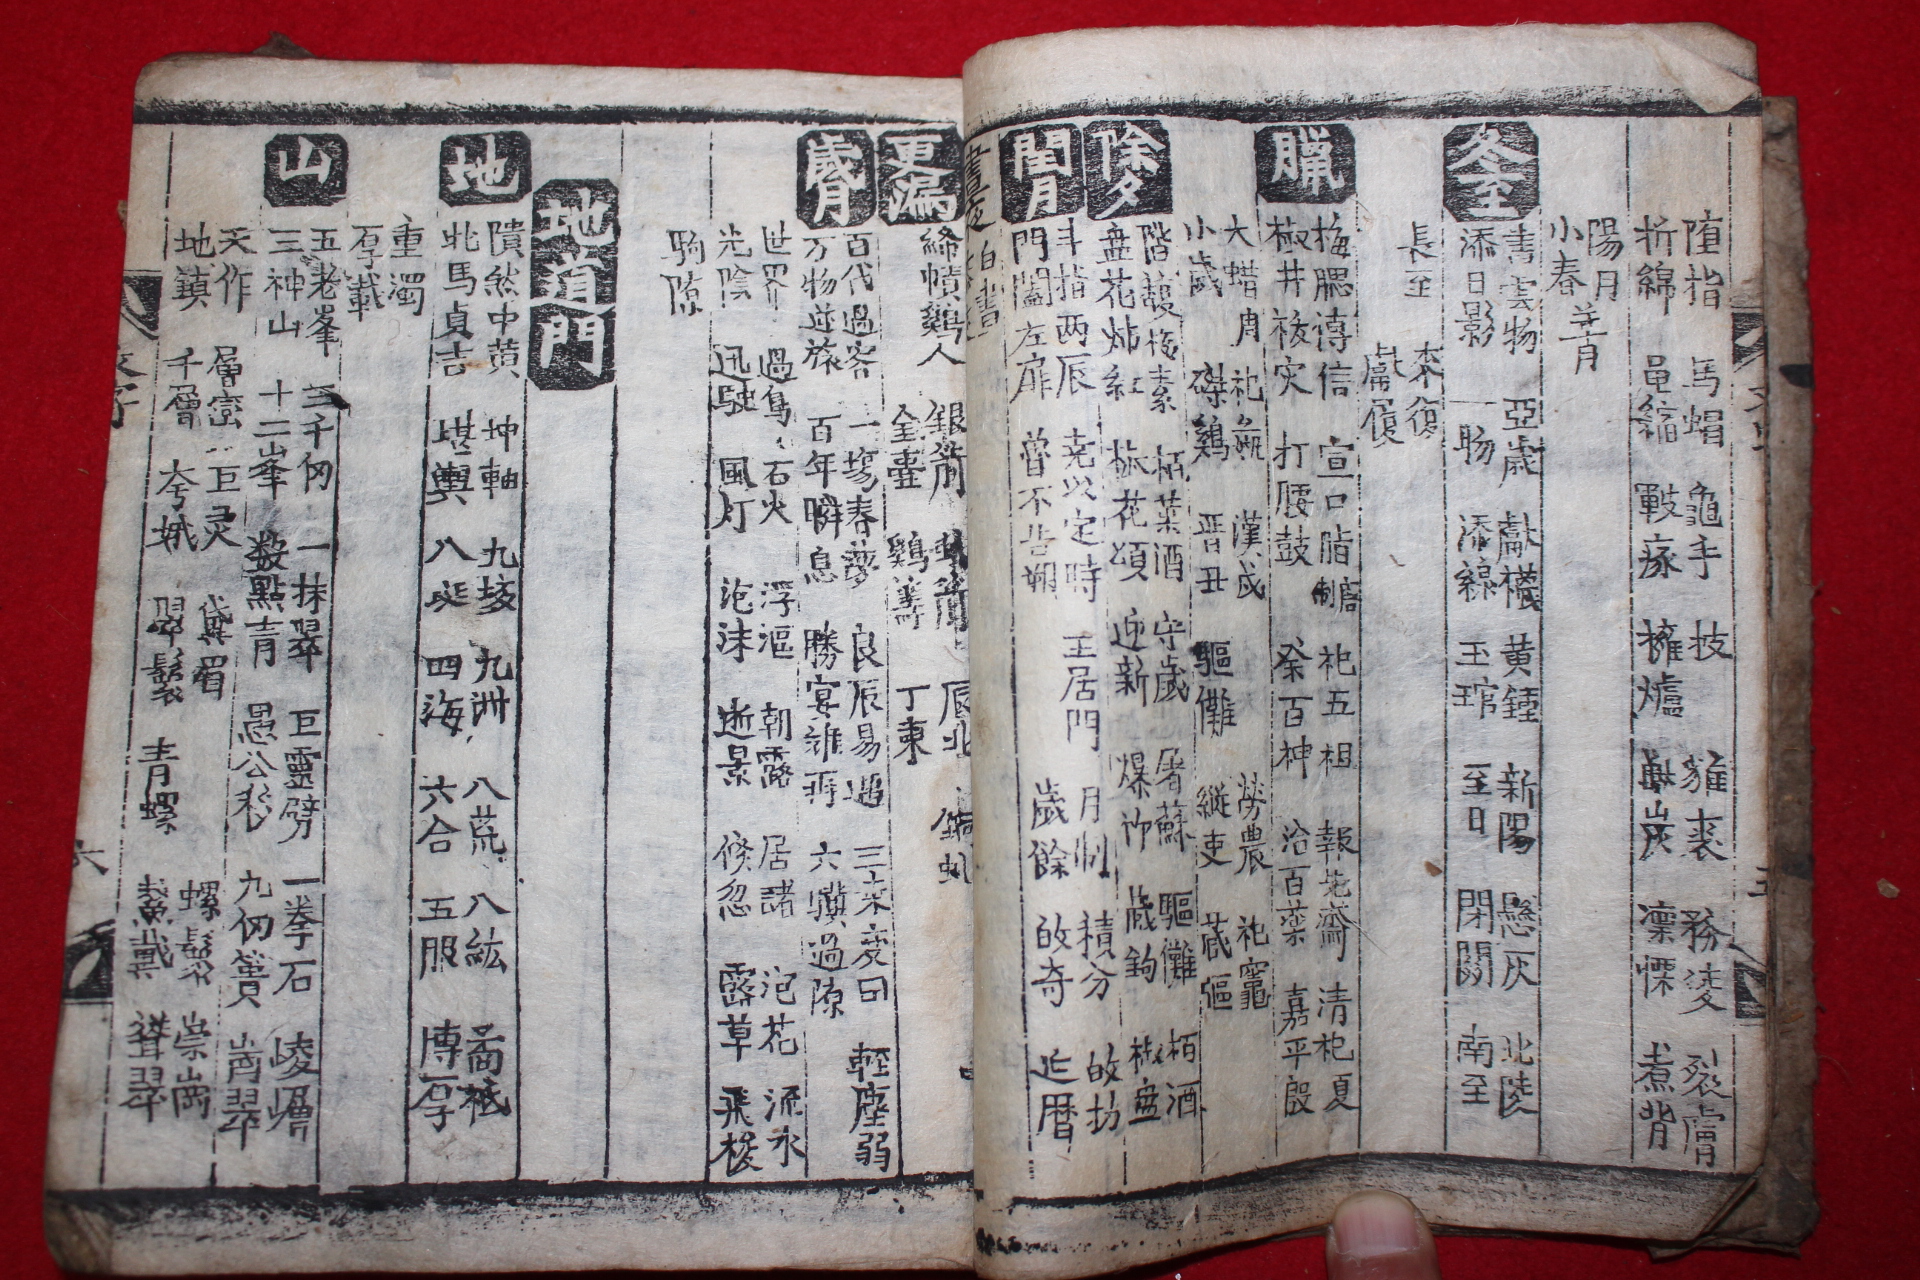 堕指 馬帽 龜手 技 雍裘 務㚆 裂膚
折綿 黽縮 皸瘃 擁爐 炭 凜慄 煮背
陽月
小春 菁月
冬至
書雲物 亞歲 獻襪 黄鍾 新陽 懸灰 北陸
添日影 一昜 添線 玉琯 至日 閉關 南至
長至 來復
薦履
臘
梅腮傳信 宣口脂 祀五祖 報先嗇 清祀夏
椒井 打腰鼓 祭百神 洽百禁 嘉平殷
大蜡 祀 漢戌 勞農 祀竈
小歲 磔鷄 晋丑 驅儺 縦吏 藏彄
除夕
階馥梅素 栢葉酒 守歲 屠蘇 驅儺 栢酒
盘花灺紅 椒花頌 迎新 爆竹 歲鉤 椒盘
閏月
斗指两辰 堯以定時 王居門 月制 積分
門闔左扉 曾不告朔 歲餘 迎曆
晝夜 白晝
更漏
絳幘鷄人 銀箭 銅虬
金壷 鷄籌 丁東
歲月
百代過客 一塲春夢 良辰易過 三來变曰 輕塵弱
万物逆旅 百年瞬息 勝宴難再 六驥過隙
世界 過鳥 石火 浮漚 朝露 居諸 泡花 流水
光陰 迅駛 風灯 泡沫 逝景 倐忽 露草 飛梭
駒隙
地道門
地
隤然中黄 坤軸 九垓 九洲 八荒 八紘 啇祗
北馬貞吉 堪輿 八埏 四海 六合 五服 博厚
重濁
厚載
山
五老峯 三千仞 一抹翠 巨靈劈 一拳石 崚嶒
三神山 十二峯 数點青 愚公移 九仞簣 岧翠
天作 層巒 巨灵 黛眉 螺鬟 崇岡
地鎮 千層 夸娥 翠鬟 青螺 鰲戴 聳翠
六